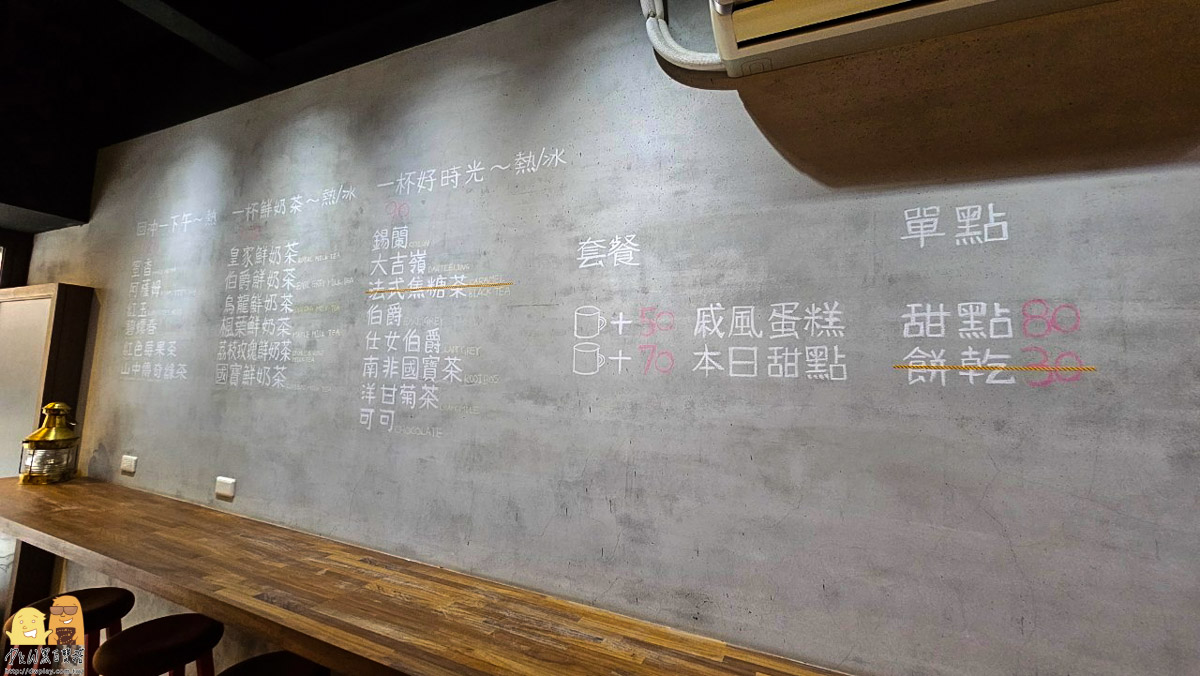 回沖一下午～熱
蜜香
阿薩姆
紅玉
碧螺春
紅色莓果茶
山中傳奇綠茶
一杯鮮奶茶～熱/冰
皇家鮮奶茶
伯爵鮮奶茶
烏龍鮮奶茶
楓葉鮮奶茶
荔枝玫瑰鮮奶茶
國寶鮮奶茶
一杯好時光～熱/冰
錫蘭
大吉嶺 DARJEELING
法式焦糖茶
伯爵 EARL GREY
仕女伯爵
南非國寶茶 ROOIBOS
洋甘菊茶
可可 CHOCOLATE
套餐
+50 戚風蛋糕
+70 本日甜點
單點
甜點 80
餅乾 30
http://dwplay.com.tw